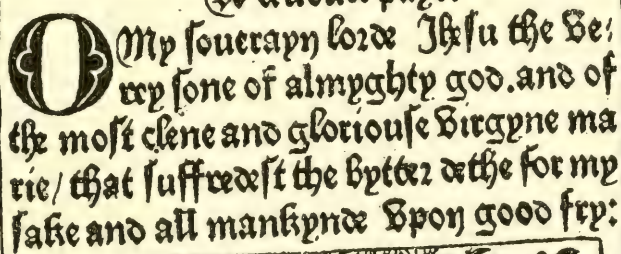 O My souerayn lorde Ihesu the Ve:
rey sone of almyghty god.and of
the most clene and gloriouse Virgyne ma
rie/ that suffredest the bytter dethe for my
sake and all mankynde Vpon good fry: